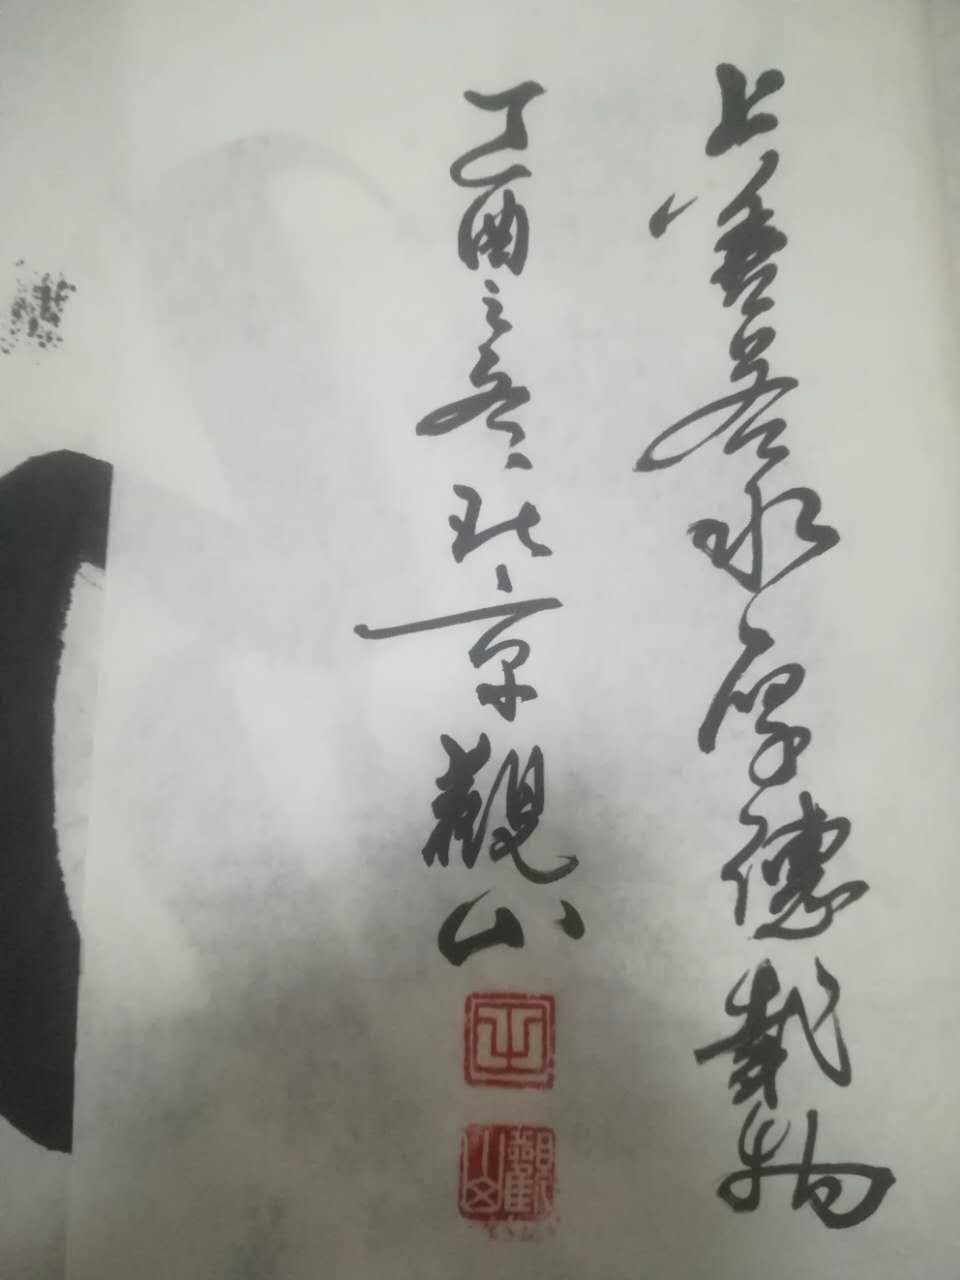 上善若水厚德載物
丁酉之冬北京觀山